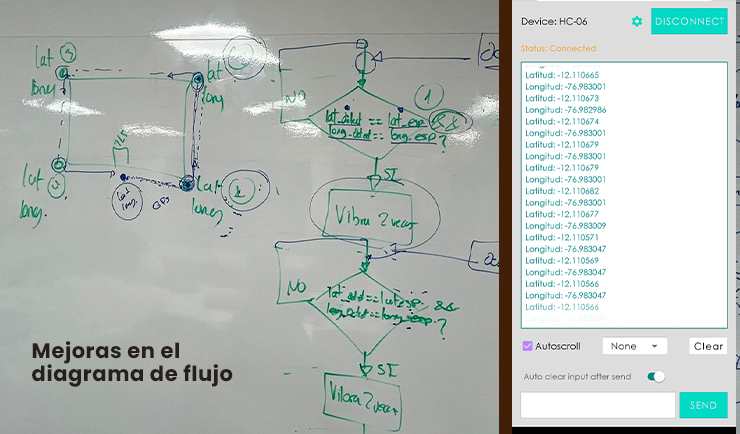 lat 3
long
lat
long
2
lat
long.
lat
long
1
GPS
1
NO
lat_actual == lat_esp &&
long_actual == long_esp ?
SI
Vibra 2 veces
NO
lat_actual == lat_esp. &&
long_actual == long_esp. ?
SI
Vibra 2 veces
Mejoras en el
diagrama de flujo
Device: HC-06
DISCONNECT
Status: Connected
Latitud: -12.110665
Longitud: -76.983001
Latitud: -12.110673
Longitud: -76.982986
Latitud: -12.110674
Longitud: -76.983001
Latitud: -12.110679
Longitud: -76.983001
Latitud: -12.110679
Longitud: -76.983001
Latitud: -12.110682
Longitud: -76.983001
Latitud: -12.110677
Longitud: -76.983009
Latitud: -12.110571
Longitud: -76.983047
Latitud: -12.110569
Longitud: -76.983047
Latitud: -12.110566
Longitud: -76.983047
Latitud: -12.110566
Autoscroll
None
Clear
Auto clear input after send
SEND